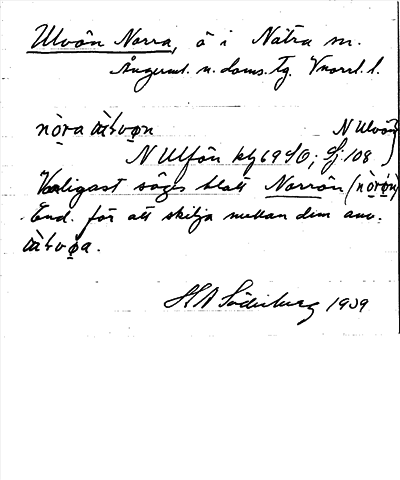 Ulvön Norra, ö i Nätra sn.
Ångerml. n. doms. tg. Vnorrl. l.
nòra ùlvøn N Ulvön
N Ulfön kbl 69 SO; Sj. 108
Vanligast säges blott Norrön (nòrøn)
End. för att skilja mellan dem anv.
ùlvøa.
H A Söderberg 1909